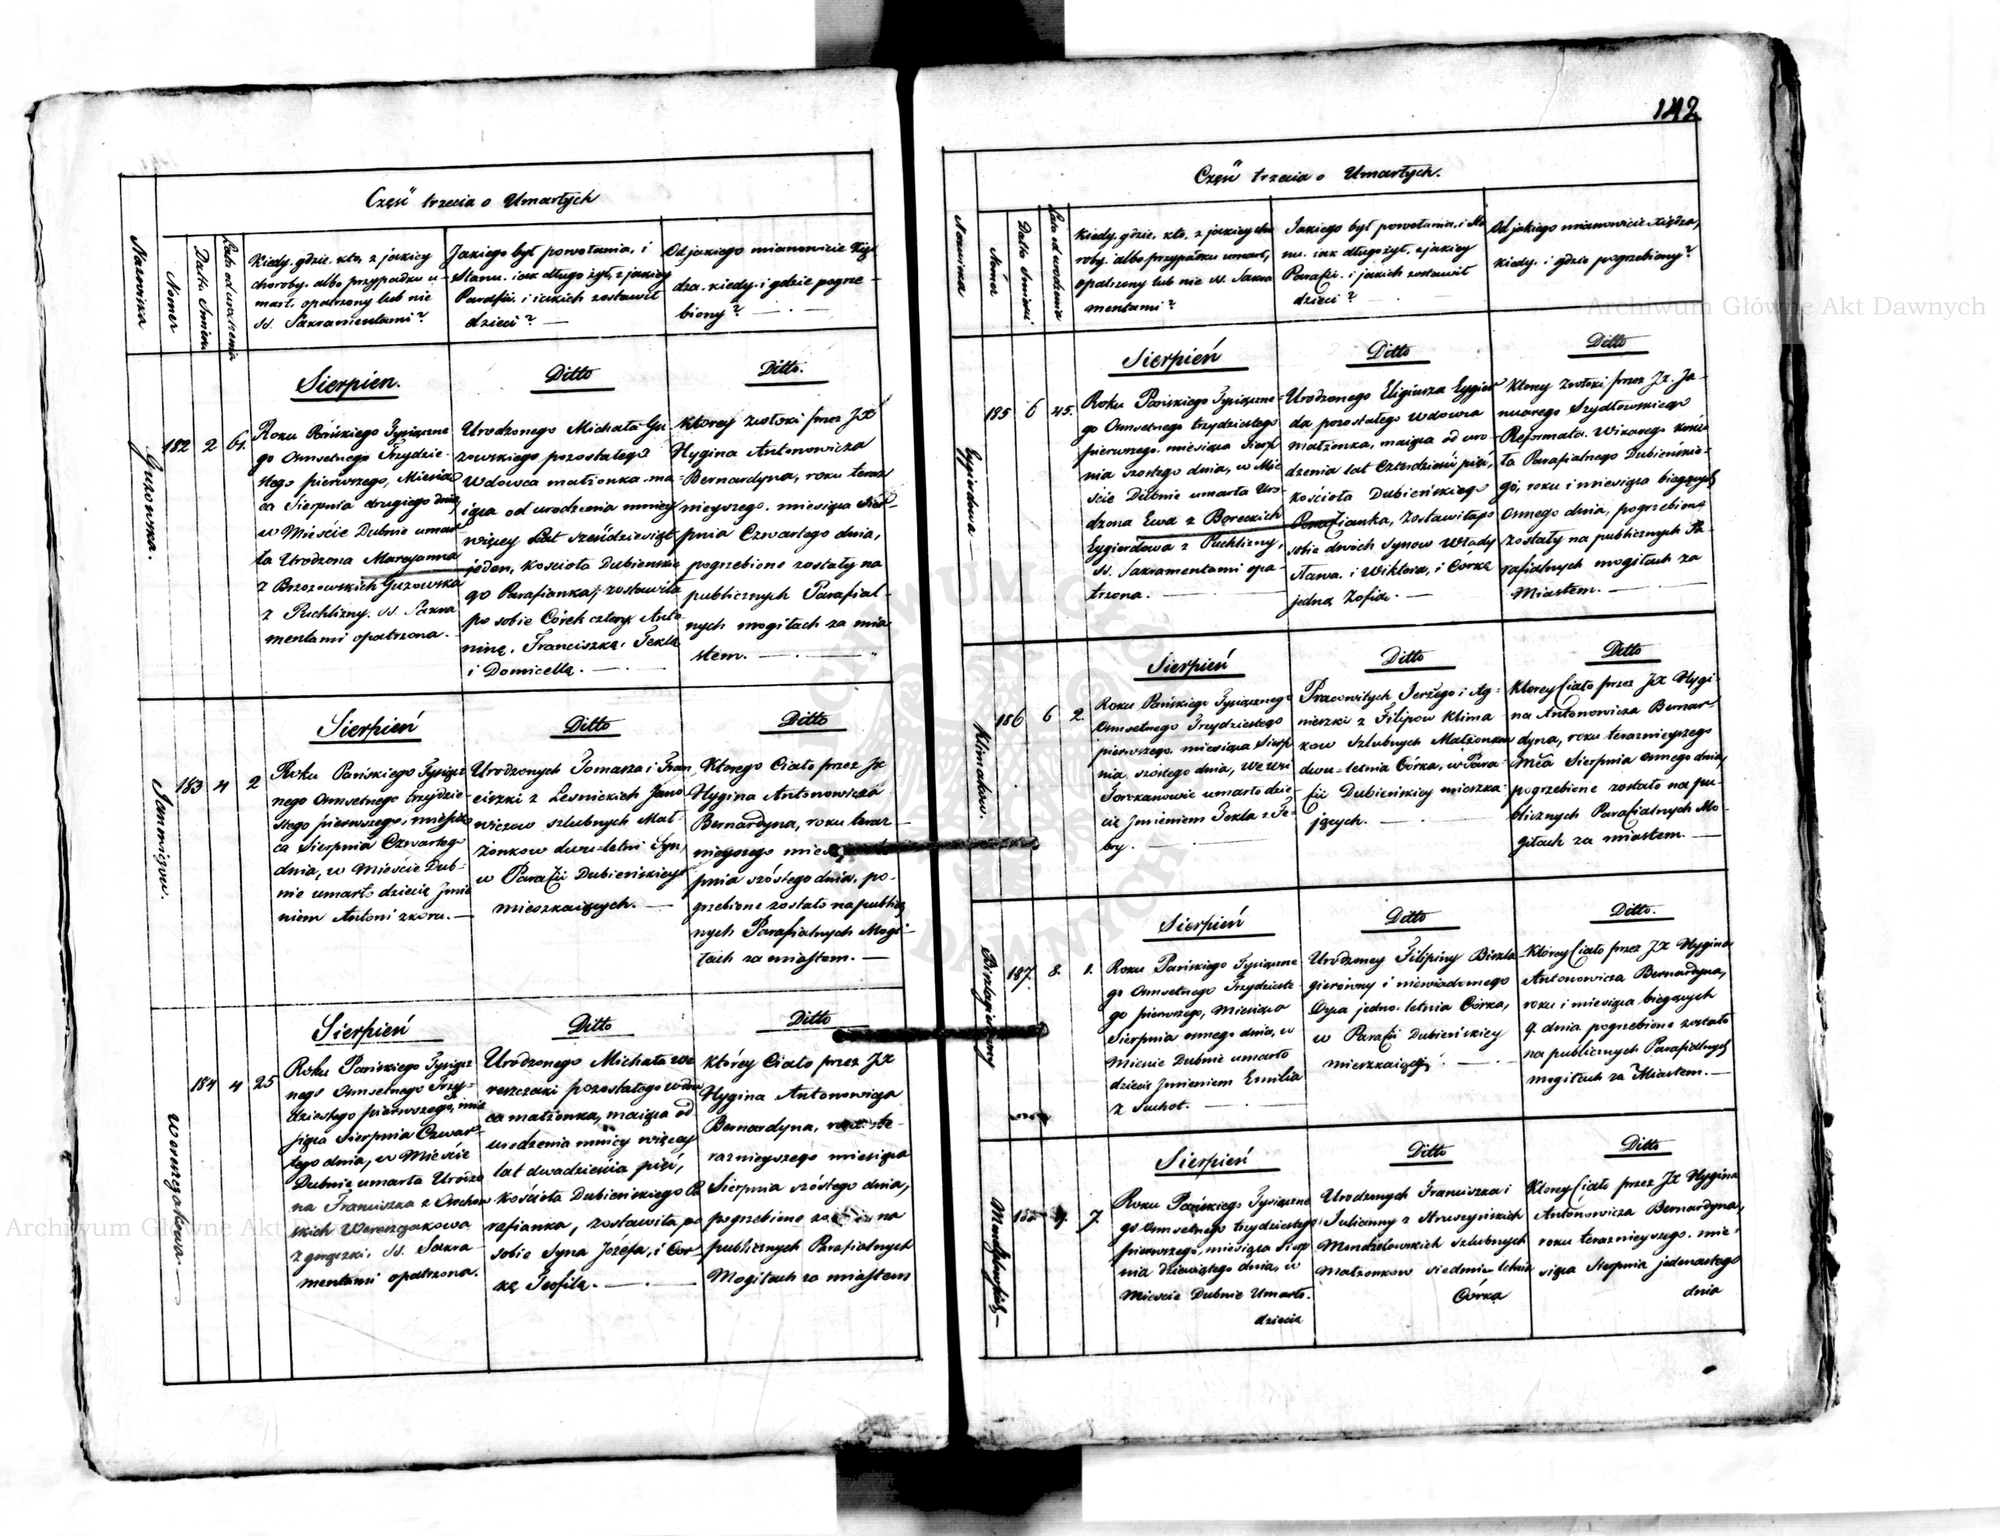 142
Część trzecia o Umarłych
Nazwiska
Nomer
Data Śmierci
Lata od urodzenia
Kiedy, gdzie, kto, z jakiey
choroby, albo przypadku u-
marł, opatrzony lub nie
SS. Sakramentami?
Jakiego był powołania, i
Stanu, iak długo żył, z jakiey
Parafii, i iakich zostawił
dzieci? —
Od jakiego mianowicie Xię-
dza, kiedy, i gdzie pogrze-
biony? — . —
Guzowska.
182
2
61.
Sierpien.
Roku Pańskiego Tysiączne
go Ośmsetnego Trzydzie-
stego pierwszego, Miesią
ca Sierpnia drugiego dnia,
w Mieście Dubnie umar
ła Urodzona Maryanna
z Brzozowskich Guzowska
z Puchlizny, SS. Sakra
mentami opatrzona.
Ditto
Urodzonego Michała Gu
zowskiego pozostałego
Wdowca małżonka, ma
iąca od urodzenia mniey
więcey Lat sześdziesiąt
jeden, Kościoła Dubienskie
go Parafianka, zostawiła
po sobie Córek cztery Anto
ninę, Franciszkę, Teklę
i Domicellę. —
Ditto.
Ktorey zwłoki przez JX
Hygina Antonowicza
Bernardyna, roku teraz
nieyszego, miesiąca Sier-
pnia Czwartego dnia,
pogrzebione zostały na
publicznych Parafial-
nych mogiłach za mia
stem. — . —
Janowiczow.
183
4
2
Sierpień
Roku Pańskiego Tysiącz
nego Ośmsetnego trzydzie-
stego pierwszego, miesią
ca Sierpnia Czwartego
dnia, w Mieście Dub-
nie umarło dziecię Jmie
niem Antoni z koru. —
Ditto
Urodzonych Tomasza i Fran
ciszki z Lesnickich Jano
wiczow szlubnych Mał
żonkow dwu-letni Syn,
w Parafii Dubieńskiey
mieszkaiących. —
Ditto
Którego Ciało przez JX
Hygina Antonowicza
Bernardyna, roku teraz
nieyszego
pnia szóstego dnia, po-
grzebione zostało na public
nych Parafialnych Mogi-
łach za miastem. —
Werenzakowa —
184
4
25
Sierpień
Roku Pańskiego Tysiącz
nego Ośmsetnego Trzy-
dziestego pierwszego, mie
siąca Sierpnia Czwar-
tego dnia, w Mieście
Dubnie umarła Urodzo
na Franciszka z
skich Werenzakowa
z gorączki, SS. Sakra-
mentami opatrzona.
Ditto
Urodzonego Michała We
reszczaki pozostałego wdow
ca małżonka, maiąca od
urodzenia mniey więcey
lat dwadzieścia pięć,
Kościoła Dubieńskiego Pa
rafianka, zostawiła po
sobie Syna Józefa, i Cór-
kę Teofilę. — . —
Ditto
Którey Ciało przez JX
Hygina Antonowicza
Bernardyna, roku te-
raznieyszego miesiąca
Sierpnia szóstego dnia,
pogrzebione zostało na
publicznych Parafialnych
Mogiłach za miastem
Część trzecia o Umarłych.
Nazwiska
Nomer
Data Śmierci
Lata od urodzenia
Kiedy, gdzie, kto, z jakiey cho
roby, albo przypadku umarł,
opatrzony lub nie SS. Sakra
mentami?
Jakiego był powołania, i Sta
nu, iak długo żył, z jakiey
Parafii, i jakich zostawił
dzieci? — . —
Od jakiego mianowicie Xiędza,
kiedy, i gdzie pogrzebiony?
Eygierdowa —
185
6
45.
Sierpień
Roku Pańskiego Tysiączne-
go Ośmsetnego trzydziestego
pierwszego, miesiąca Sierp
nia szóstego dnia, w Mie
ście Dubnie umarła Uro-
dzona Ewa z Boreckich
Eygierdowa z Puchlizny,
SS. Sakramentami opa-
trzona. —
Ditto
Urodzonego Eligiusza Eygier
da pozostałego wdowca
małżonka, maiąca od uro-
dzenia lat Czterdzieści pięć,
kościoła Dubieńskiego
Parafianka, zostawiła po
sobie dwóch Synow Włady
sława, i Wiktora, i Córkę
jedną Zofię. —
Ditto
Ktorey zwłoki przez JX. Ja-
nuarego Szydłowskiego
Reformata, Wikarego kości
ła Parafialnego Dubieńskie-
go, roku i miesiąca bieżących
ósmego dnia, pogrzebione
zostały na publicznych Pa-
rafialnych mogiłach za
Miastem. —
Klimakow.
186
6
2.
Sierpień
Roku Pańskiego Tysiącznego
Ośmsetnego Trzydziestego
pierwszego, miesiąca Sierp
nia szóstego dnia, we wsi
umarło dzie
cię Jmieniem Tekla z Fe-
bry. — . —
Ditto
Pracowitych Jerzego i Ag-
nieszki z Filipow Klima
kow szlubnych Małżonkow
dwu-letnia Córka, w Para-
fii Dubieńskiey mieszka-
jących. —
Ditto
Ktorey Ciało przez JX Hygi-
na Antonowicza Bernar-
dyna, roku teraznieyszego
Mca Sierpnia ósmego dnia,
pogrzebione zostało na pu-
blicznych Parafialnych Mo-
giłach za miastem. —
187.
8.
1.
Sierpień
Roku Pańskiego Tysiączne
go Ośmsetnego Trzydzieste
go pierwszego, Miesiąca
Sierpnia ósmego dnia, w
Mieście Dubnie umarło
dziecię Jmieniem Emilia
z Suchot. — . —
Ditto
Urodzoney Filipiny
gierowny i niewiadomego
Oyca jedno-letnia Córka,
w Parafii Dubieńskiey
mieszkaiącey. —
Ditto.
Którey Ciało przez JX Hygina
Antonowicza Bernardyna,
roku i miesiąca bieżących
9. dnia pogrzebione zostało
na publicznych Parafialnych
mogiłach za Miastem. —
9.
7.
Sierpień
Roku Pańskiego Tysiączne
go Ośmsetnego trzydziestego
pierwszego, miesiąca Sierp
nia dziewiątego dnia, w
Mieście Dubnie Umarło
dziecię
Ditto
Urodzonych Franciszka i
Julianny z Struszyńskich
szlubnych
Małżonkow siedmio-letnia
Córka
Ditto
Ktorey Ciało przez JX Hygina
Antonowicza Bernardyna,
roku teraznieyszego, mie-
siąca Sierpnia jedenastego
dnia
Archiwum Główne Akt Dawnych
Archiwum Główne Akt